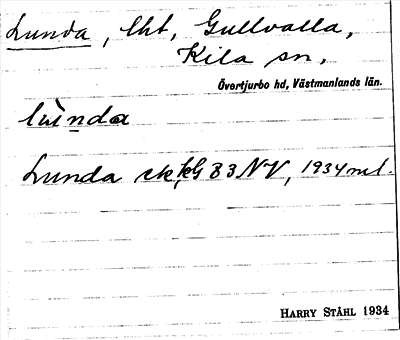 Lunda, lht, Gullvalla,
Kila sn,
Övertjurbo hd, Västmanlands län.
lu̇̀nda
Lunda ekbl 83 NV, 1934 ml.
HARRY STÅHL 1934